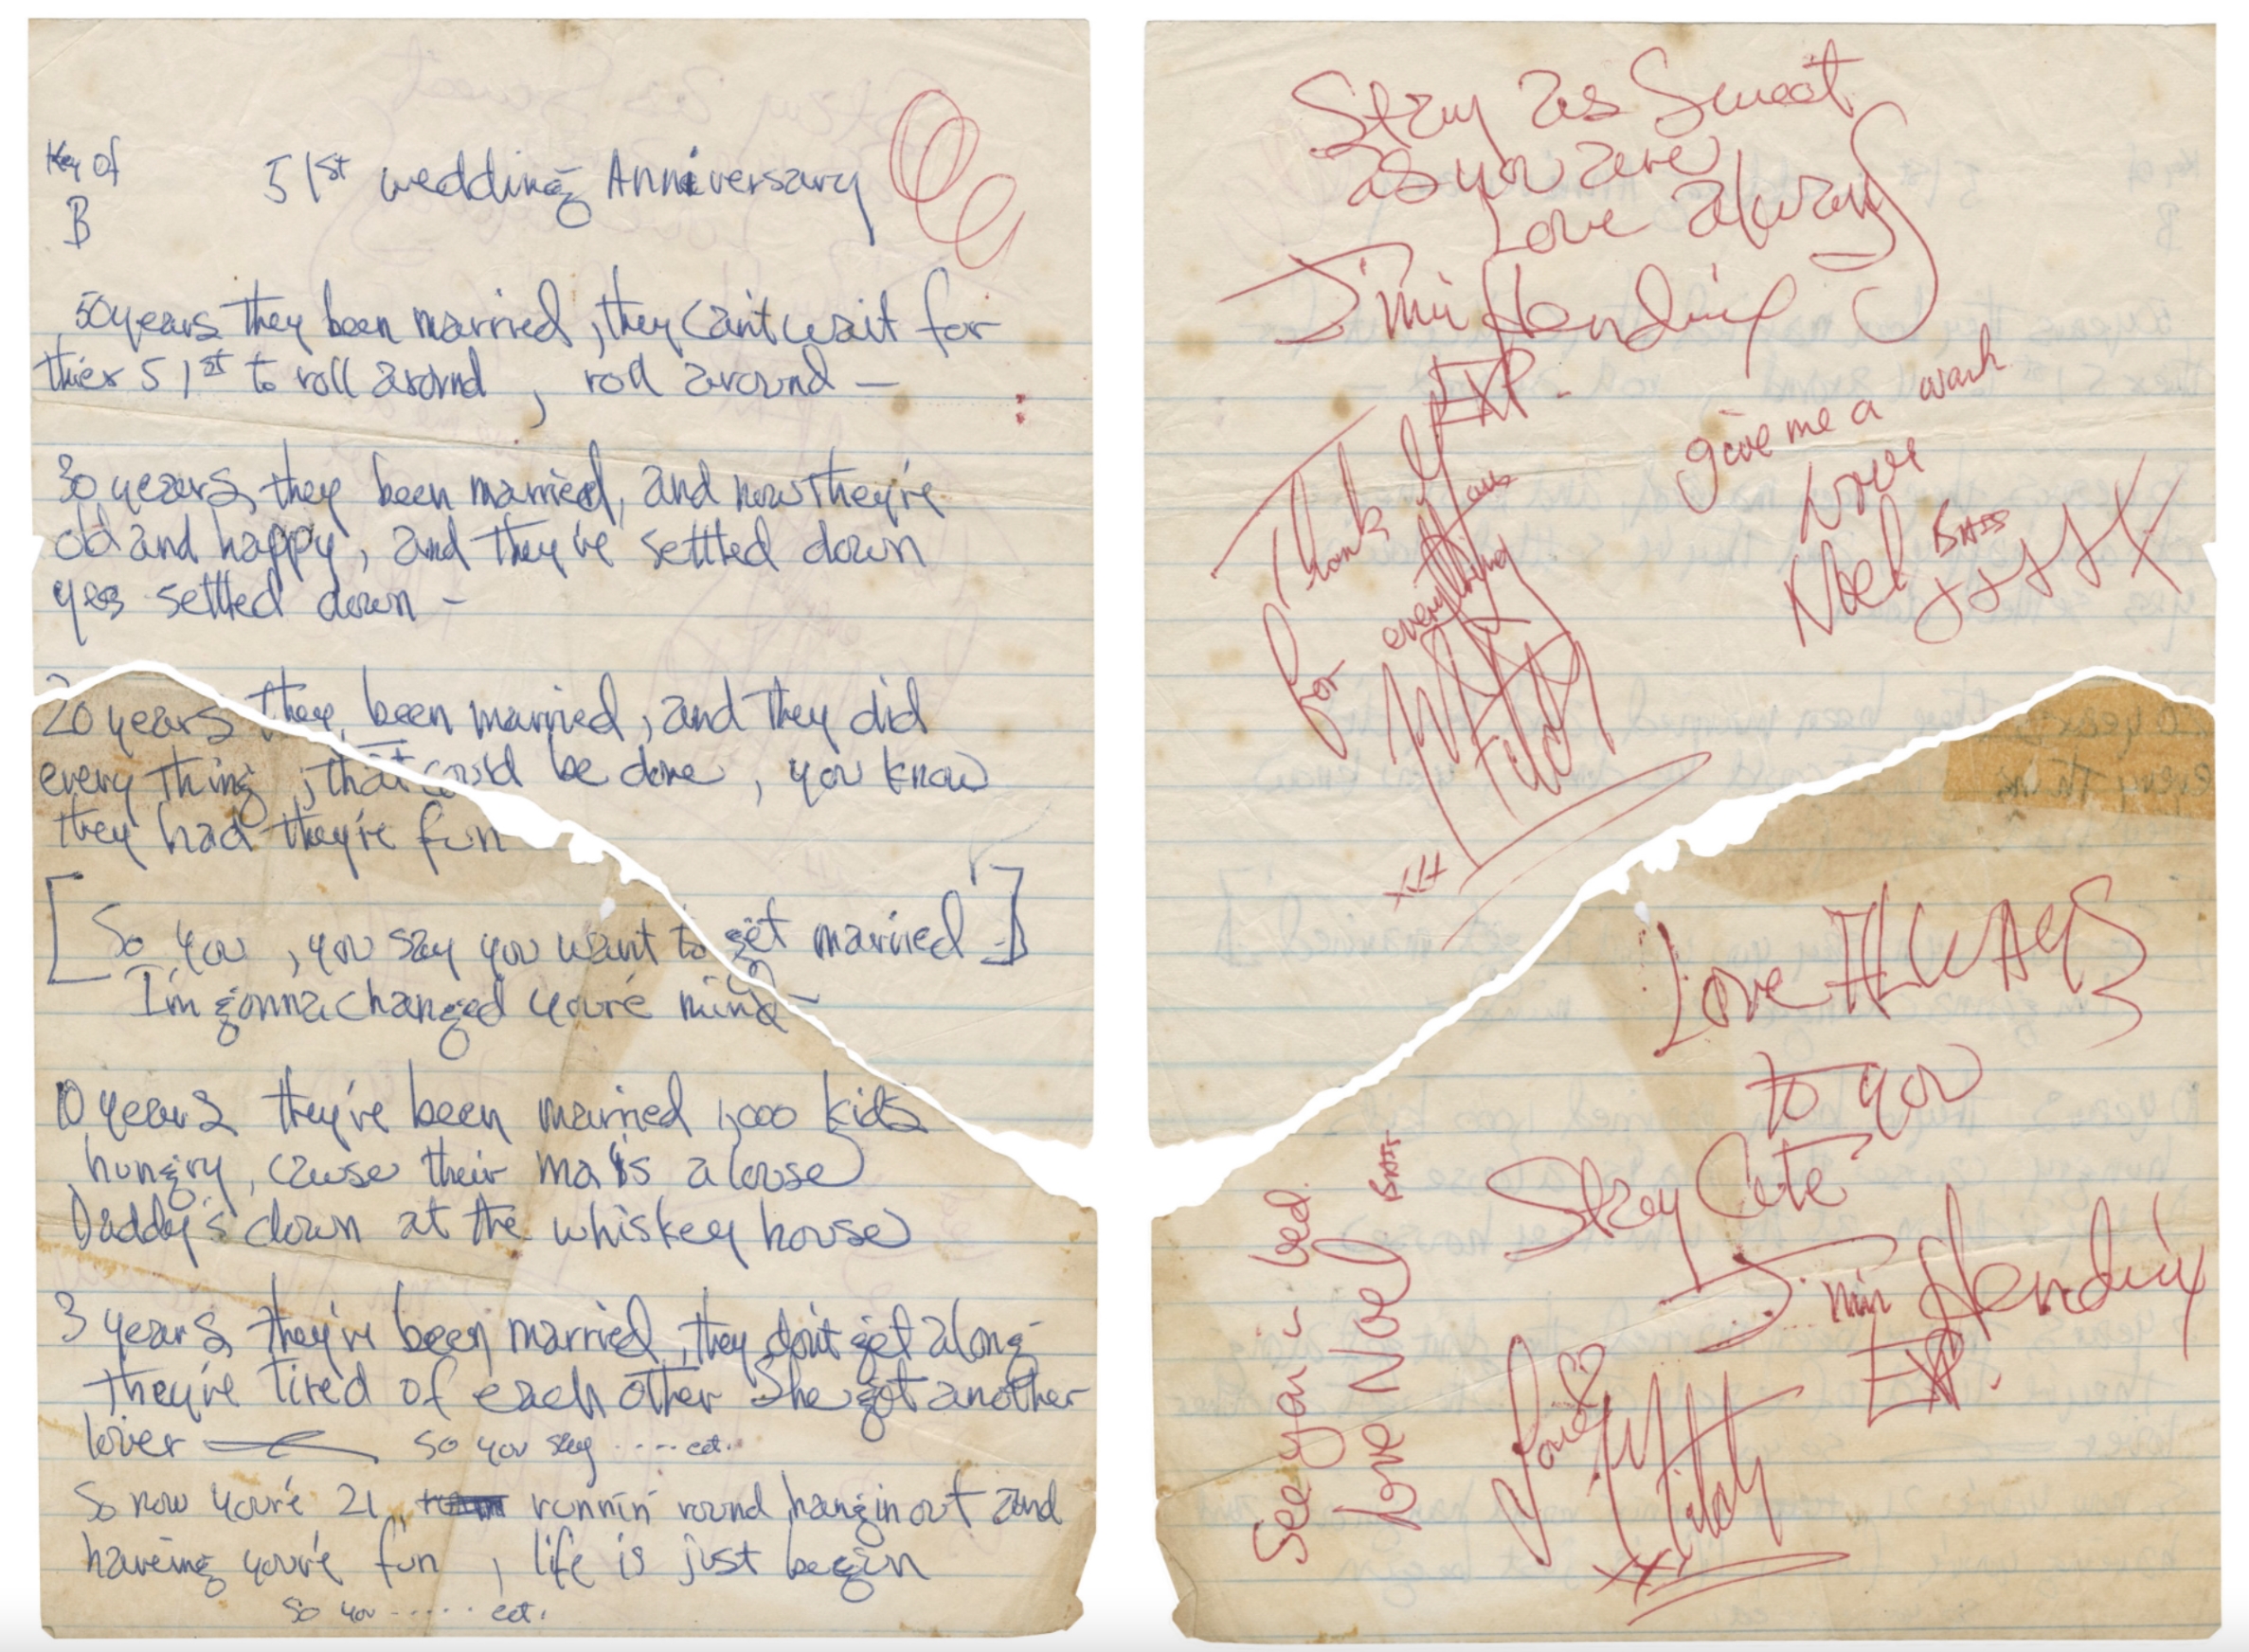 Key of
B
51st wedding Anniversary
50 years they been married, they can't wait for
thier 51st to roll around, roll around —
30 years, they been married, and now they're
old and happy, and they've settled down
yes settled down -
20 years they been married, and they did
every thing, that could be done, you know
they had they're fun
[So you, you say you want to get married]
I'm gonna changed your'e mind -
10 years they've been married 1,000 kids
hungry, cause their ma is a louse
Daddy's down at the whiskey house
3 years they've been married, they don't get along
they're tired of each other she got another
lover — so you say ..... ect.
So now your'e 21, runnin' round hangin out and
haveing your'e fun, life is just begin
So you ...... ect.
Stay as Sweet
as you are
Love always
Jimi Hendrix
EXP.
Thank you
for everything
Mitch
xxx
give me a wash
love
Noel BASS
xxxxx
Love ALWAYS
to you
Stay Cute
Jimi Hendrix
EXP.
See you in bed.
love Noel BASS
Love
Mitch
xxx